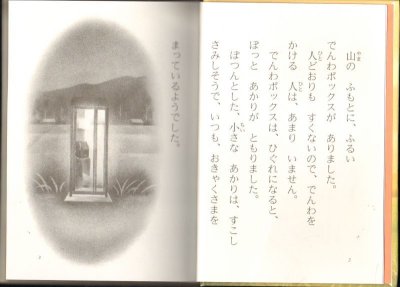 山の　ふもとに、ふるい
でんわボックスが　ありました。
人どおりも　すくないので、でんわを
かける　人は、あまり　いません。
でんわボックスは、ひぐれになると、
ぽっと　あかりが　ともりました。
ぽつんとした、小さな　あかりは、すこし
さみしそうで、いつも、おきゃくさまを
まっているようでした。